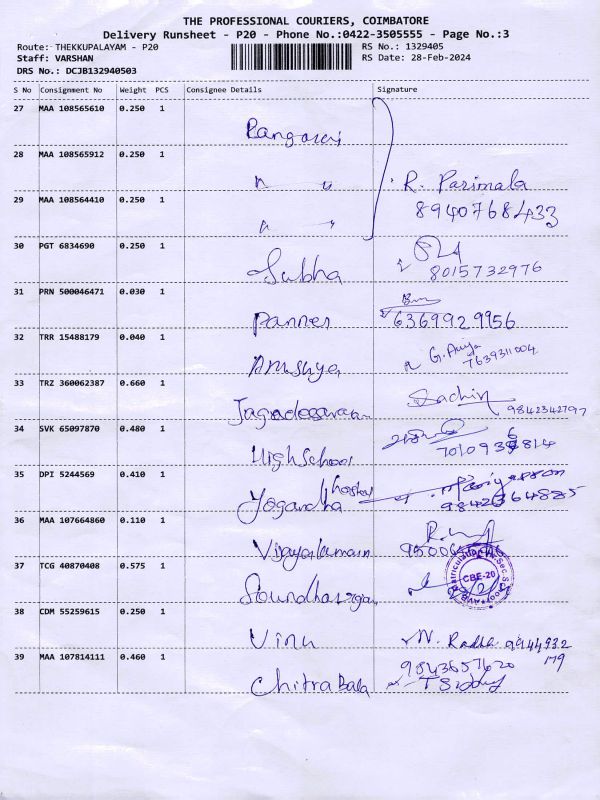 THE PROFESSIONAL COURIERS, COIMBATORE
Delivery Runsheet - P20 - Phone No.:0422-3505555 - Page No.:3
Route: THEKKUPALAYAM - P20 RS No.: 1329405
Staff: VARSHAN RS Date: 28-Feb-2024
DRS No.: DCJB132940503
S No Consignment No Weight PCS Consignee Details Signature
27 MAA 108565610 0.250 1
28 MAA 108565912 0.250 1
R. Parimala
29 MAA 108564410 0.250 1
8940768433
30 PGT 6834690 0.250 1
Subha 8015732976
31 PRN 500046471 0.030 1
Panner 6369929956
32 TRR 15488179 0.040 1
Anushya 7639311004
33 TRZ 360062387 0.660 1
Sachin
Jagadeeswaran 9842342797
34 SVK 65097870 0.480 1
High School
35 DPI 5244569 0.410 1
Yogandha hostel 9842364885
36 MAA 107664860 0.110 1
Vijayakumar
37 TCG 40870408 0.575 1
CBE-20
38 CDM 55259615 0.250 1
Vinu N. Radha 9944932
179
39 MAA 107814111 0.460 1
9843657620
Chitra Bala